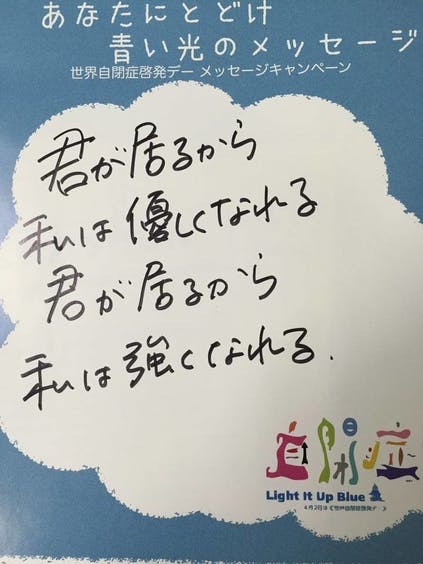 あなたにとどけ
青い光のメッセージ
世界自閉症啓発デー メッセージキャンペーン
君が居るから
私は優しくなれる
君が居るから
私は強くなれる.
自閉症
Light It Up Blue
4月2日は《世界自閉症啓発デー》